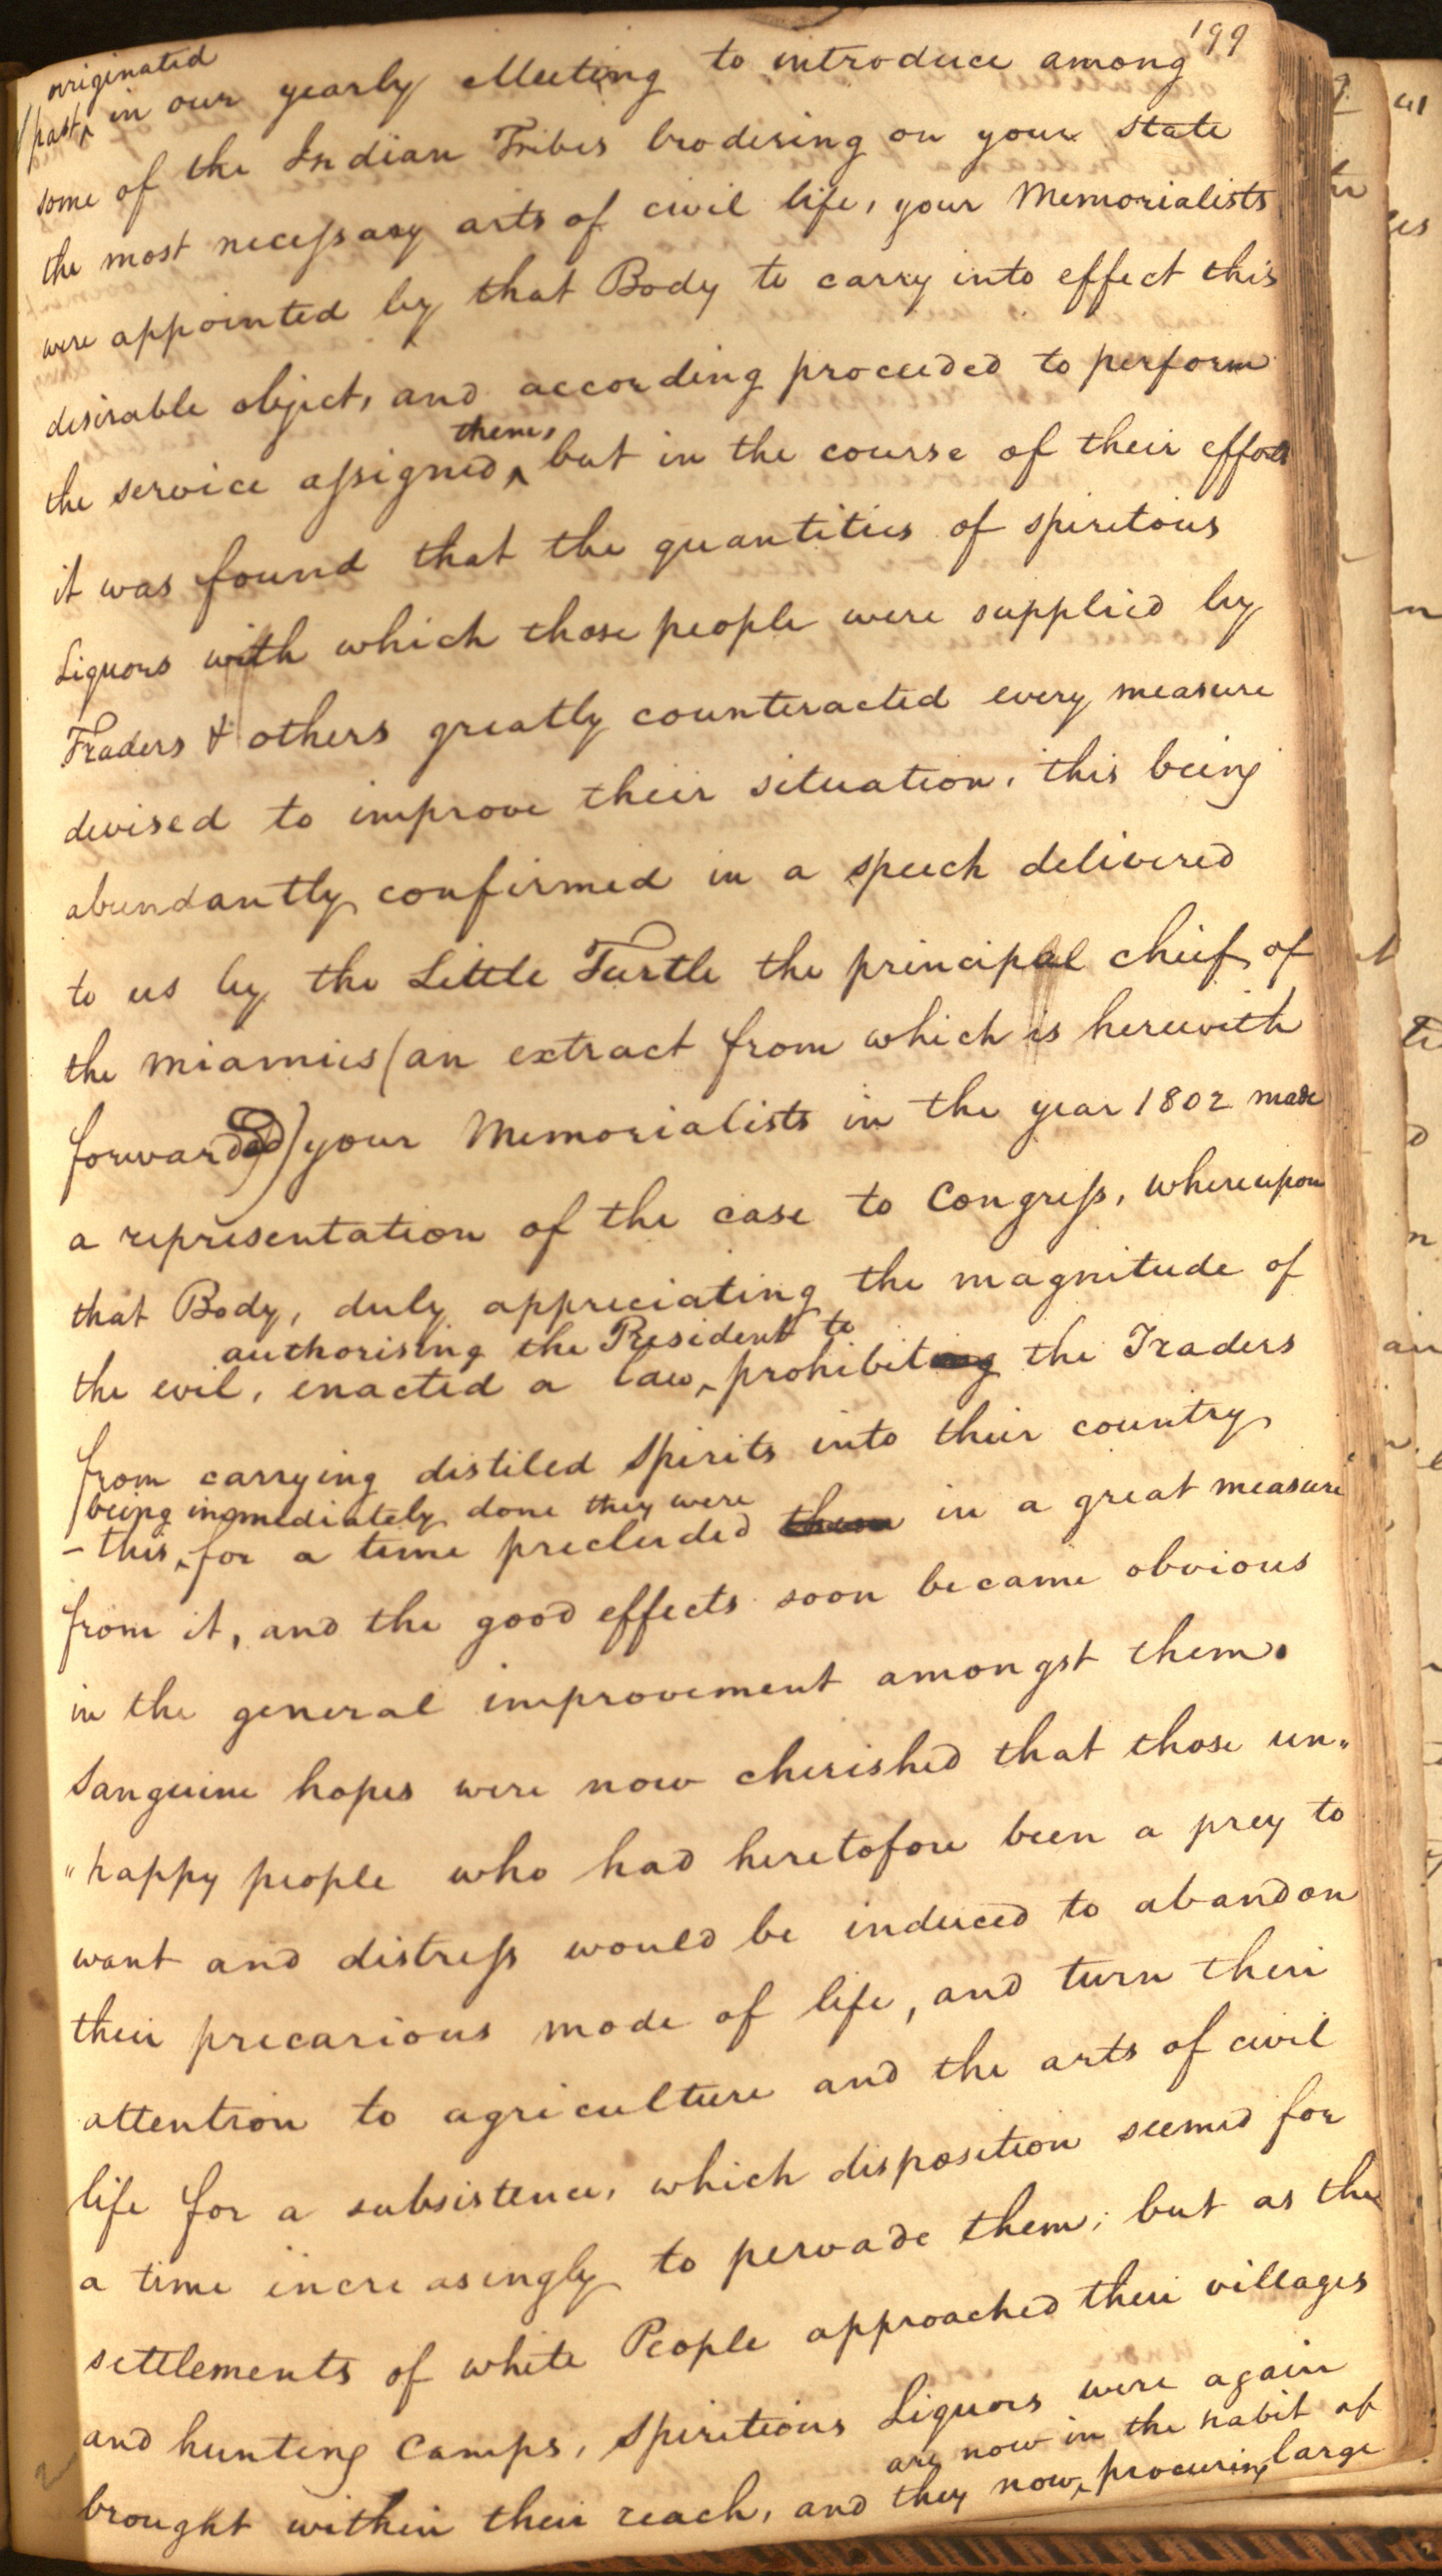 199
originated
past ^ in our yearly Meeting to introduce among
some of the Indian Tribes brodering on your State
the most necessary arts of civil life, your Memorialists
were appointed by that Body to carry into effect this
desirable object, and according proceeded to perform
them,
the service assigned ^ but in the course of their efforts
it was found that the quantities of spiritous
Liquors with which those people were supplied by
Traders & others greatly counteracted every measure
devised to improve their situation, this being
abundantly confirmed in a speech delivered
to us by the Little Turtle the principal chief of
the miamies (an extract from which is herewith
forwarded) your Memorialists in the year 1802 made
a representation of the case to Congress, whereupon
that Body, duly appreciating the magnitude of
authorising the President to
the evil, enacted a law ^ prohibiting the Traders
from carrying distiled Spirits into their country
being immediately done they were
- this ^ for a time precluded them in a great measure
from it, and the good effects soon became obvious
in the general improvement amongst them.
Sanguine hopes were now cherished that those un"
"happy people who had heretofore been a prey to
want and distress would be induced to abandon
their precarious mode of life, and turn their
attention to agriculture and the arts of civil
life for a subsistence, which disposition seemed for
a time increasingly to pervade them; but as the
settlements of white People approached their villages
and hunting Camps, Spiritious Liquors were again
are now in the habit of
brought within their reach, and they now ^ procuring large
2